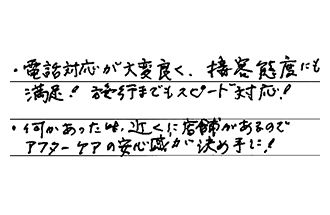 ・電話対応が大変良く、接客態度にも
満足！発行までもスピード対応！
・何かあった時、近くに店舗があるので
アフターケアの安心感が決め手に！